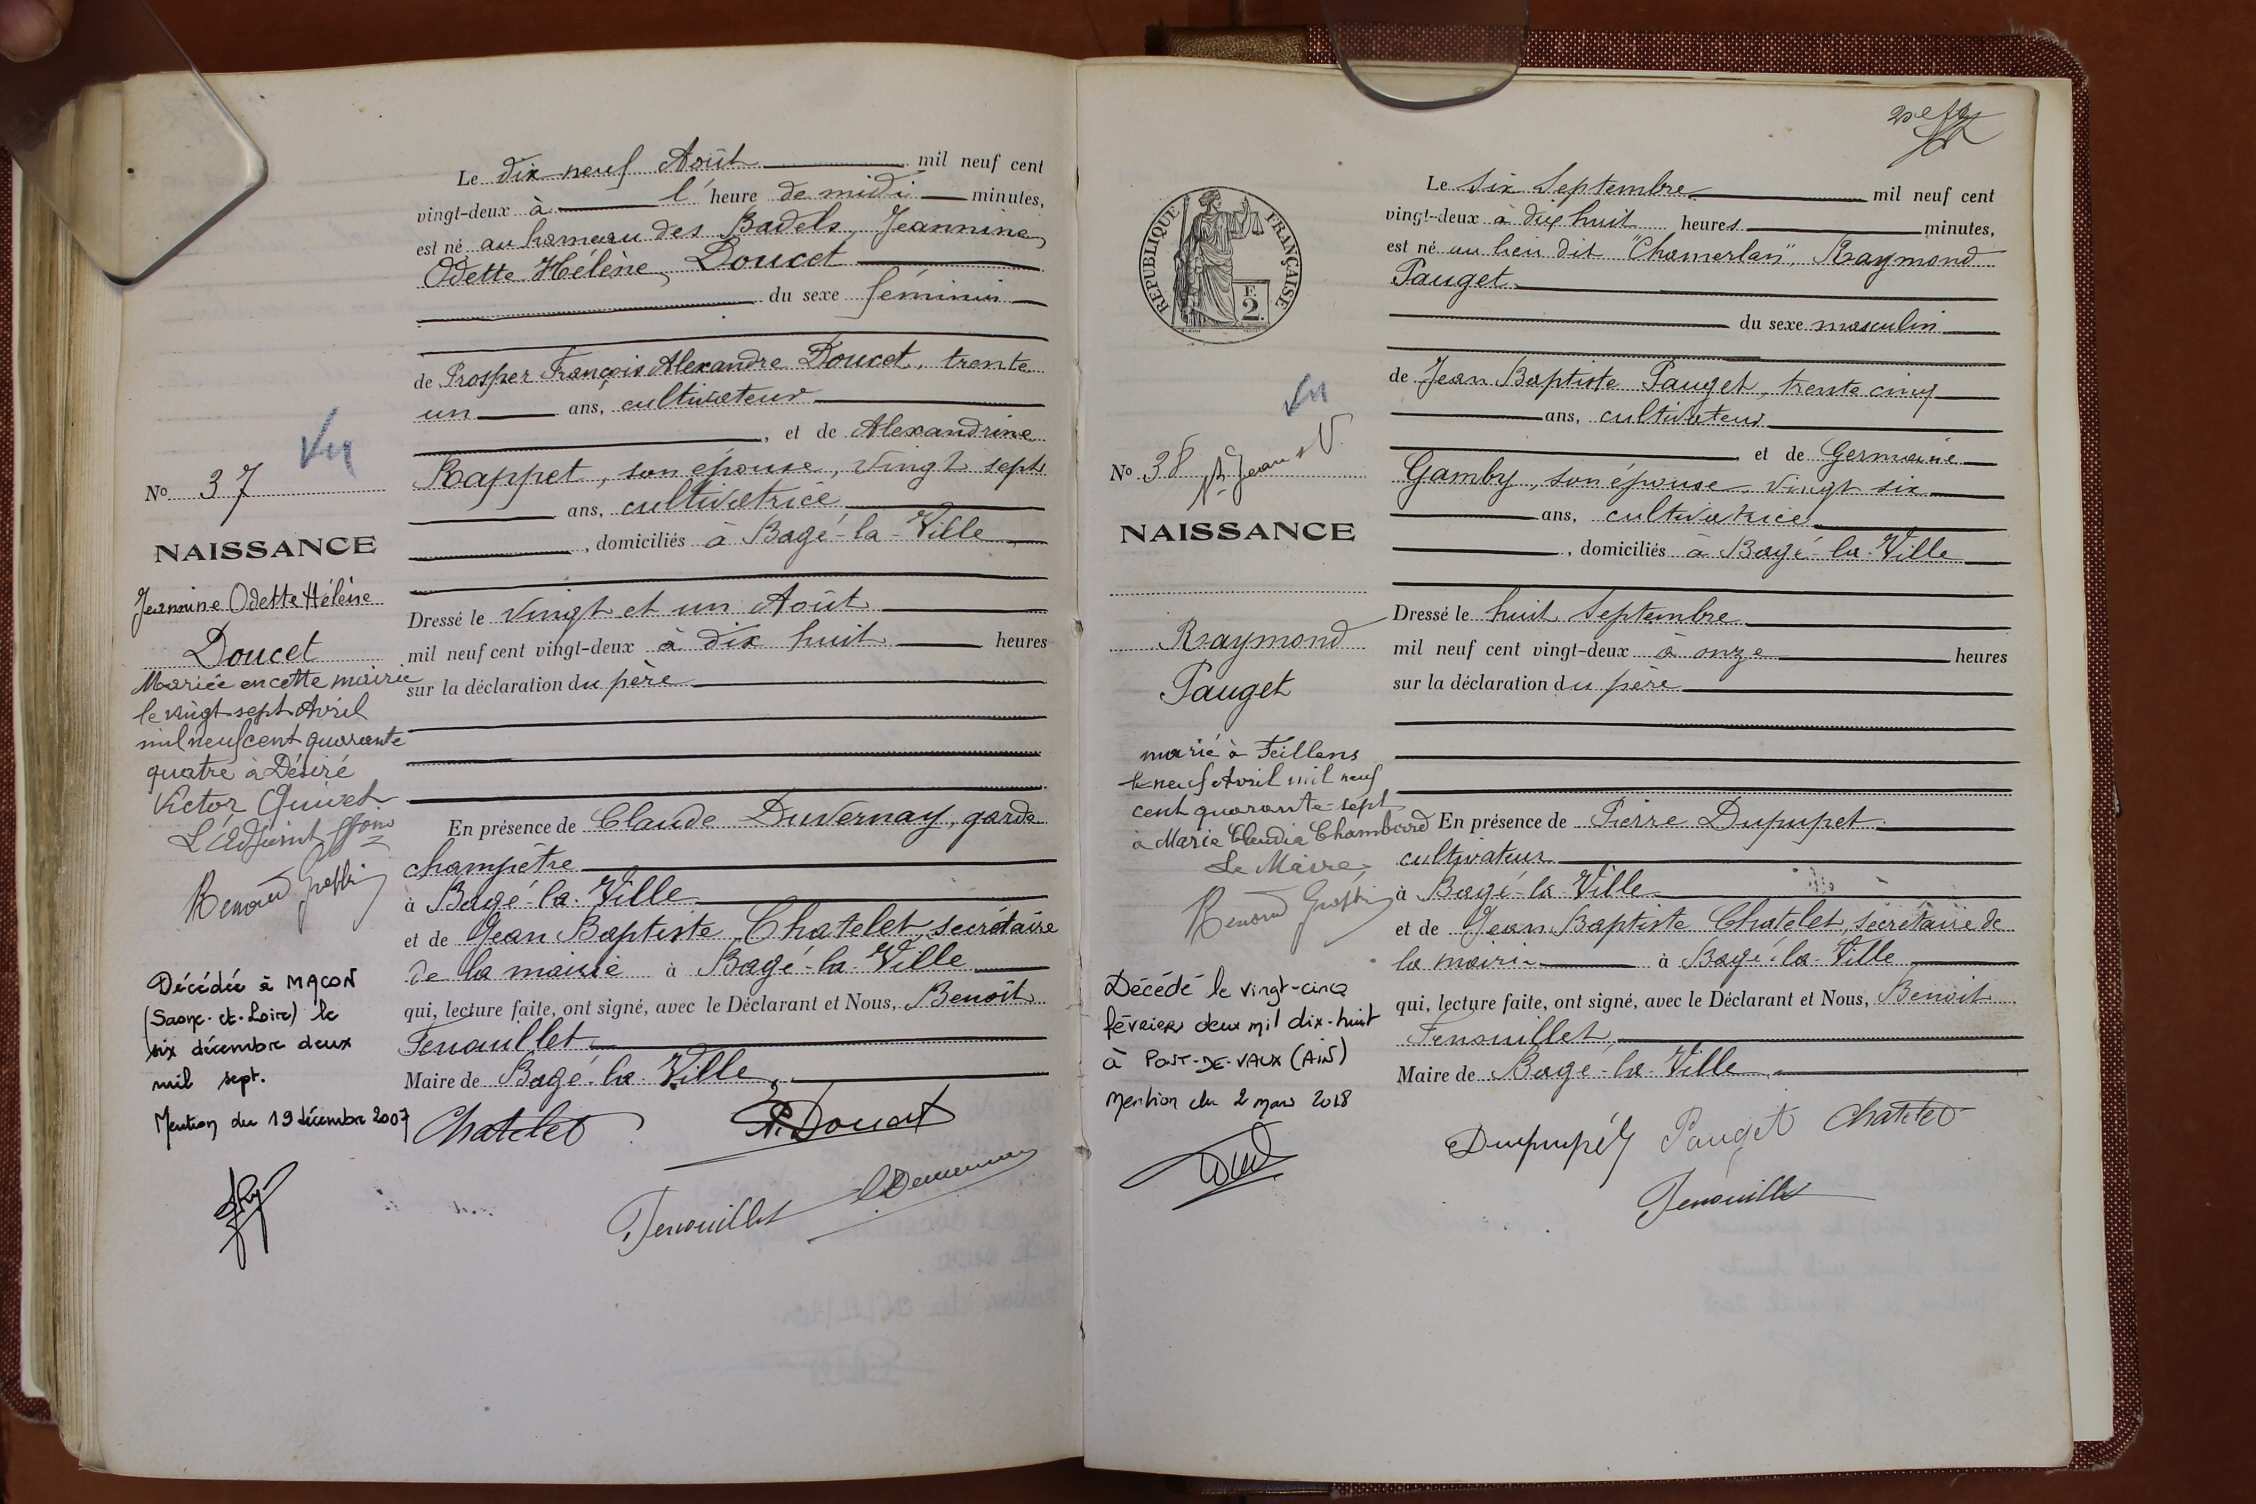 Le dix neuf Août mil neuf cent
vingt-deux à l'heure de midi minutes,
est né au hameau des Badels, Jeannine
Odette Hélène, Doucet
du sexe féminin
de Prosper François Alexandre Doucet, trente
un ans, cultivateur
, et de Alexandrine
Rappet, son épouse, vingt sept
ans, cultivatrice
, domiciliés à Bagé-la-Ville
Dressé le vingt et un Août
mil neuf cent vingt-deux à dix huit heures
sur la déclaration du père
En présence de Claude Duvernay, garde
champêtre
à Bagé-la-Ville
et de Jean Baptiste Chatelet, secrétaire
de la mairie à Bagé-la-Ville
qui, lecture faite, ont signé, avec le Déclarant et Nous, Benoît
Fenouillet
Maire de Bagé-la-Ville
Chatelet P. Doucet
Fenouillet
Vu
No 37
NAISSANCE
Jeannine Odette Hélène
Doucet
Mariée en cette mairie
le vingt sept Avril
mil neuf cent quarante
quatre à Désiré
Victor Quivet
L'Adjoint
Décédée à MACON
(Saone-et-Loire) le
six décembre deux
mil sept.
Mention du 19 décembre 2007
RÉPUBLIQUE FRANÇAISE
F.
2.
Le six Septembre mil neuf cent
vingt-deux à dix huit heures minutes,
est né au lieu dit "Chamerlan", Raymond
Pauget
du sexe masculin
de Jean Baptiste Pauget, trente cinq
ans, cultivateur
et de Germaine
Gamby, son épouse, vingt six
ans, cultivatrice
, domiciliés à Bagé-la-Ville
Dressé le huit Septembre
mil neuf cent vingt-deux à onze heures
sur la déclaration du père
En présence de Pierre Dupupet
cultivateur
à Bagé-la-Ville
et de Jean Baptiste Chatelet, secrétaire de
la mairie à Bagé-la-Ville
qui, lecture faite, ont signé, avec le Déclarant et Nous, Benoit
Fenouillet,
Maire de Bagé-la-Ville
Dupupét Pauget Chatelet
Fenouillet
Vu
No 38
NAISSANCE
Raymond
Pauget
marié à Feillens
le neuf Avril mil neuf
cent quarante-sept
à Marie Claudia Chambard
Le Maire,
Décédé le vingt-cinq
février deux mil dix-huit
à PONT-DE-VAUX (AIN)
Mention du 2 mars 2018